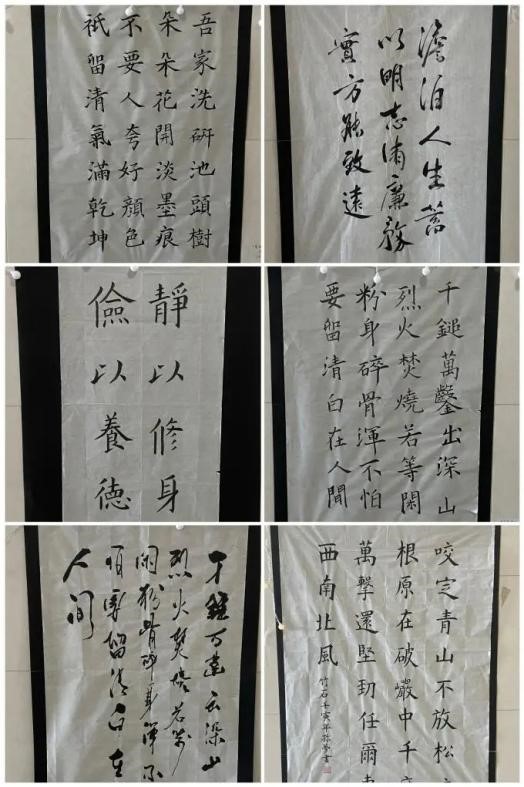 吾家洗硏池頭樹
朵朵花開淡墨痕
不要人夸好顏色
祇留清氣滿乾坤
澹泊人生蓄
以明志清廉務
實方能致遠
靜以修身
儉以養德
千鎚萬鑿出深山
烈火焚燒若等閑
粉身碎骨渾不怕
要留清白在人間
千錘万鑿出深山
烈火焚燒若等
閑粉骨碎身渾不
怕要留清白在
人间
咬定青山不放松
根原在破巖中千
萬擊還堅韌任爾
西南北風
竹石壬寅年